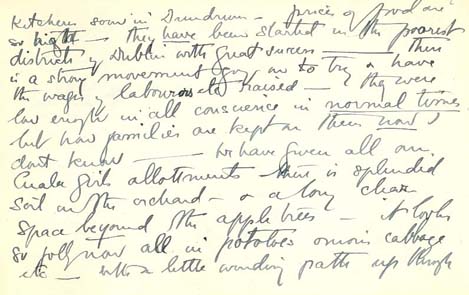 Kitchens soon in Dundrum — prices of food are
so high — they have been started in the poorest
districts of Dublin with great success — there
is a strong movement going on to try & have
the wages of labourers etc raised — they were
low enough in all conscience in normal times
but how families are kept on them now I
dont know — we have given all our
Cuala girls allotments — there is splendid
soil in the orchard — & a long clear
space beyond the apple trees — it looks
so jolly now all in potatoes onions cabbage
etc — with a little winding path up through